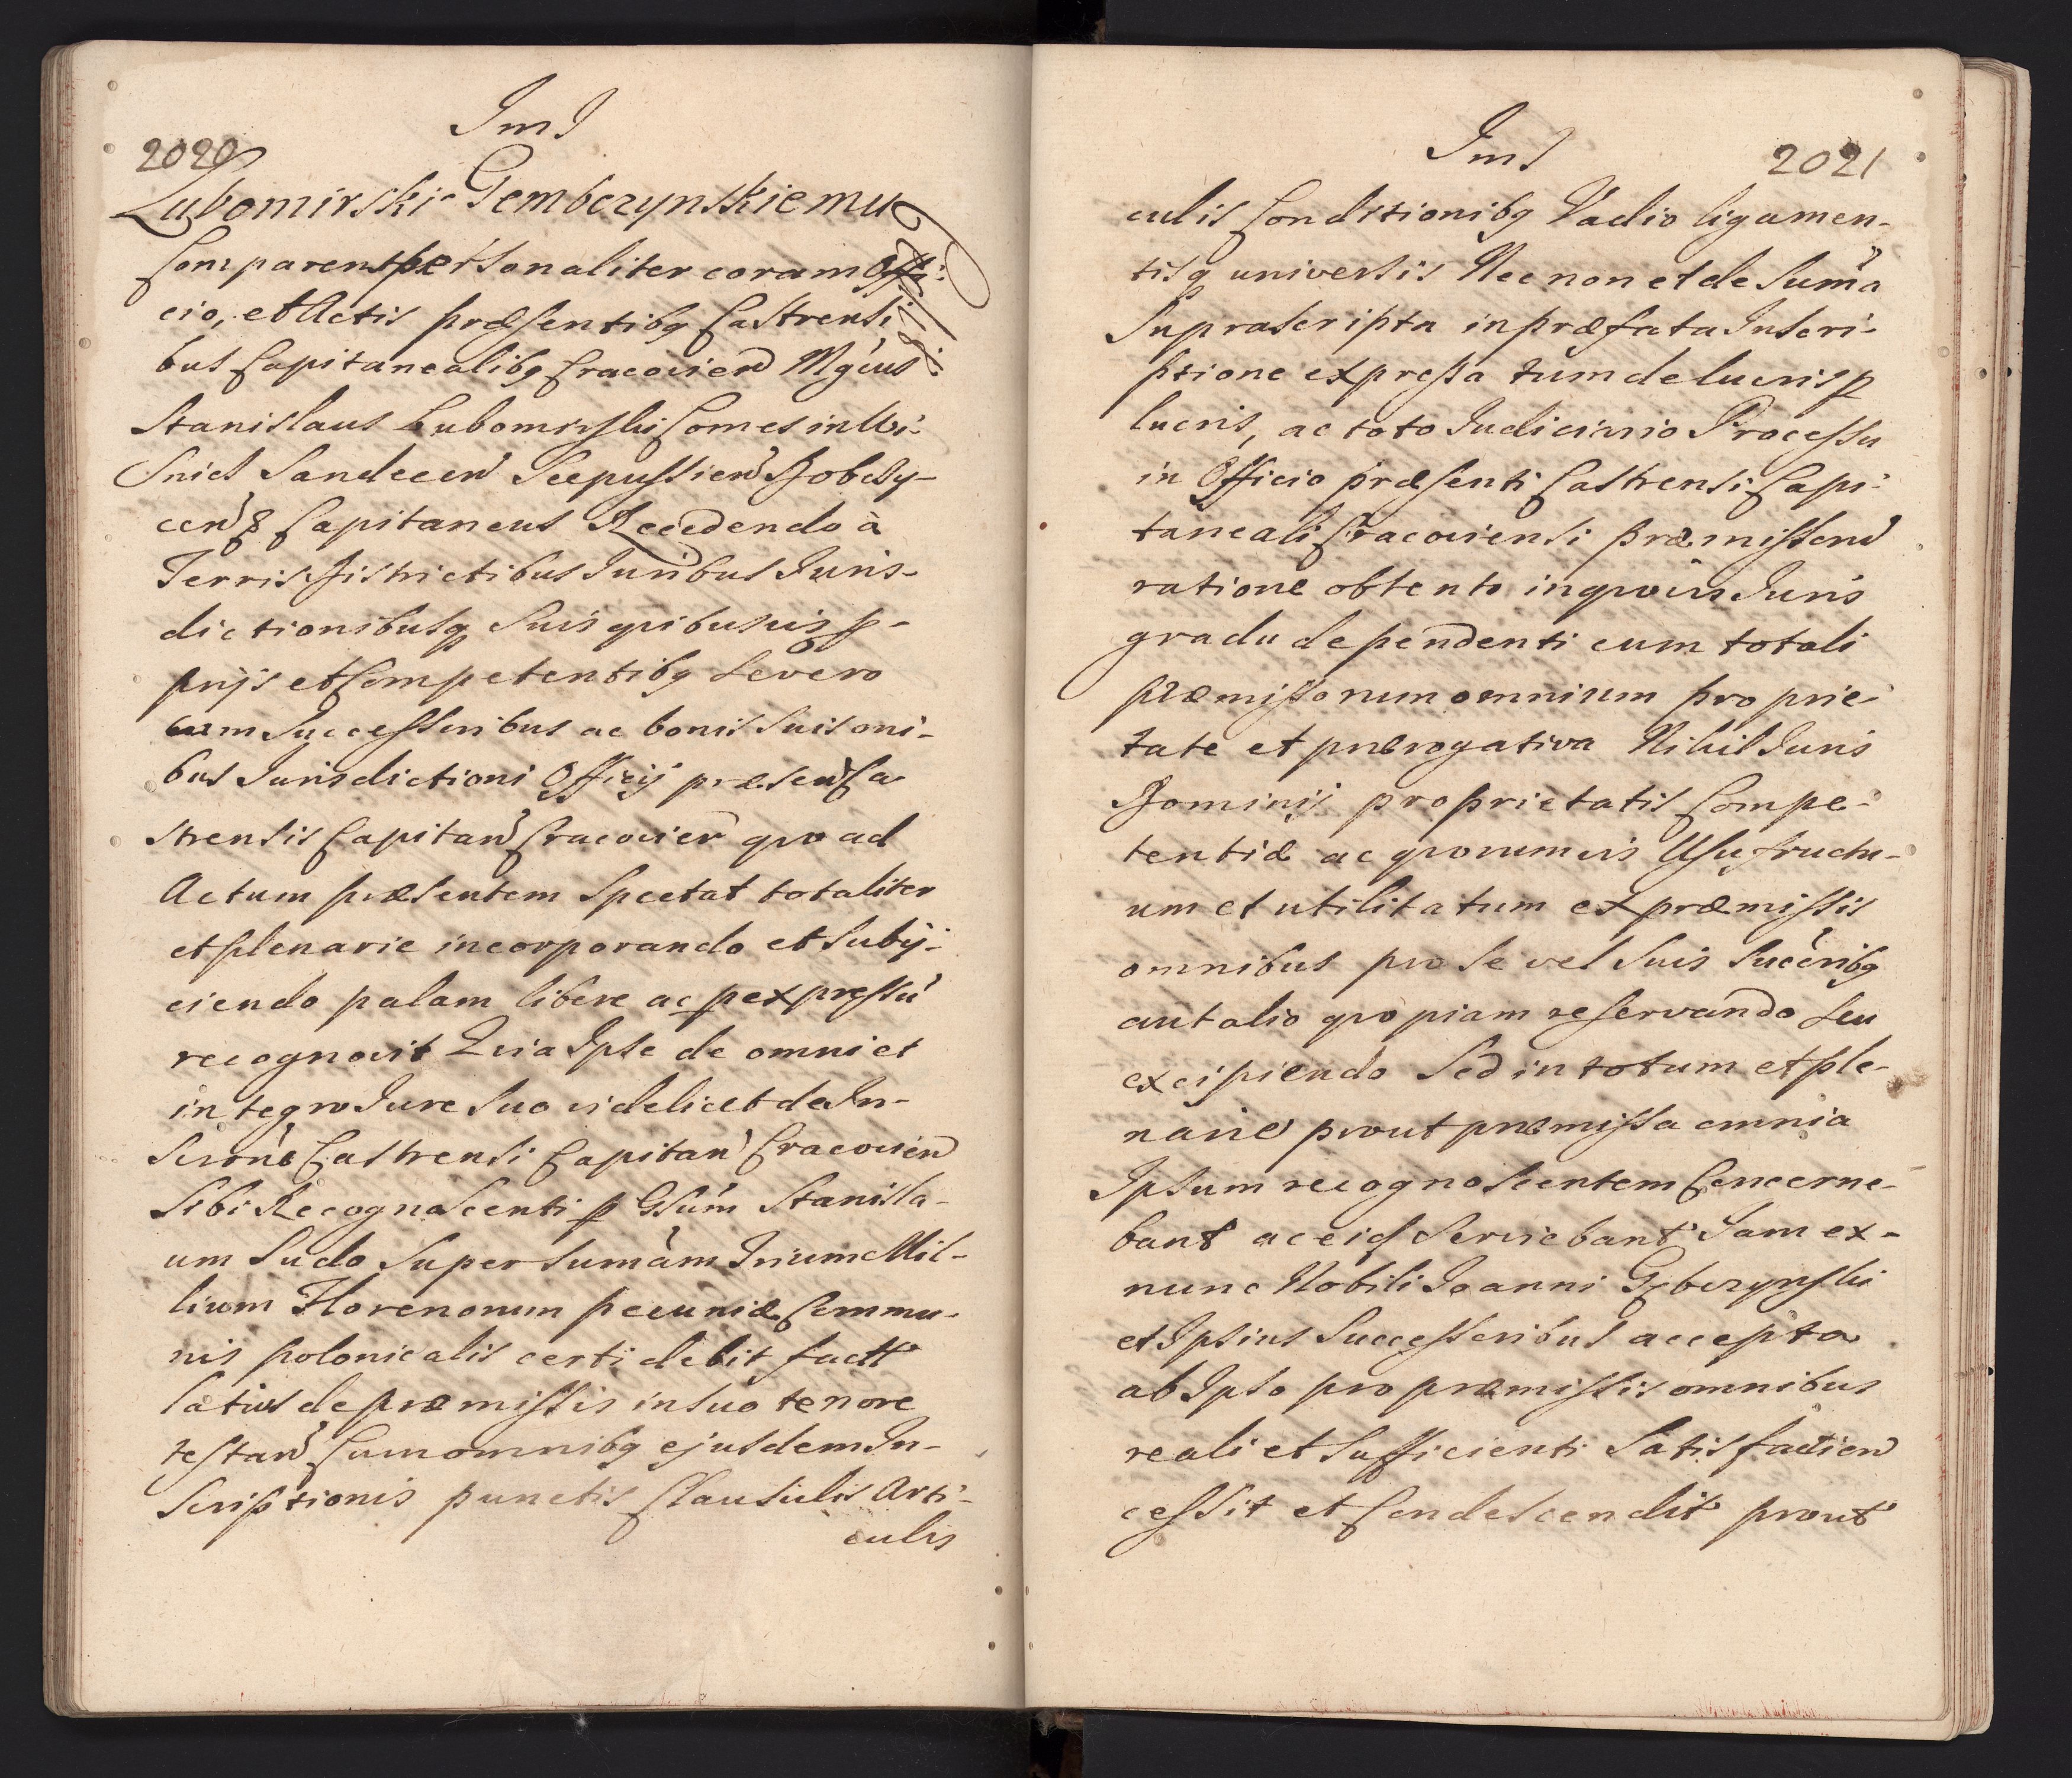 JmJ
2020
Lubomirski Gembczynskiemu
Comparens personaliter coram Offi-
cio, et Actis præsentibq Castrensi
bus Capitanealibq Cracovien Mgcus
Stanislaus Lubomirski Comes in Wi-
snicz Sandecen Scepussien Dobczy-
cen & Capitaneus Recedendo à
Terris Districtibus Juribus Juris-
dictionibusq suis quibusvis p-
prijs et Competentibq Se vero
cum Successoribus ac bonis suis oni-
bus Jurisdictioni Officij præsen Ca
strensis Capitan Cracovien quo ad
Actum præsentem Spectat totaliter
et plenarie incorporando et Subij-
ciendo palam libere ac p expressu
recognovit Quia Ipse de omni et
integro Jure Suo videlicet de In-
Scrone Castrensi Capitan Cracovien
Sibi Recognoscenti p Gsum Stanisla-
um Sudo Super Sumam Trium Mil-
lium Florenorum pecuniæ Commu-
nis polonicalis certi debit fact
latius de præmissis in suo tenore
testan Cum omnibq ejusdem In-
Scriptionis punctis Clausulis Arti-
culis
JmJ
2021
culis Conditionibq Vadio ligamen-
tisq universis Nec non et de Suma
Suprascripta in præfata Inscri-
ptione expressa tum de lucris p
lucris, ac toto Judiciario Processu
in Officio præsenti Castrensi Capi-
taneali Cracoviensi præmissorum
ratione obtento inquovis Juris
gradu dependenti cum totali
præmissorum omnium proprie-
tate et prærogativa Nihil Juris
Dominij proprietatis Compe-
tentiæ ac quorumvis Usufructu-
um et utilitatum ex præmissis
omnibus pro Se vel Suis Succribq
aut alio quopiam reservando Seu
excipiendo Sed in totum et ple-
narie prout præmissa omnia
Ipsum recognoscentem Concerne-
bant ac eis Serviebant Jam ex-
nunc Nobili Joanni Gębczynski
et Ipsius Successoribus accepta
ab Ipso pro præmissis omnibus
reali et Sufficienti Satisfactien
cessit et Condescendit prout